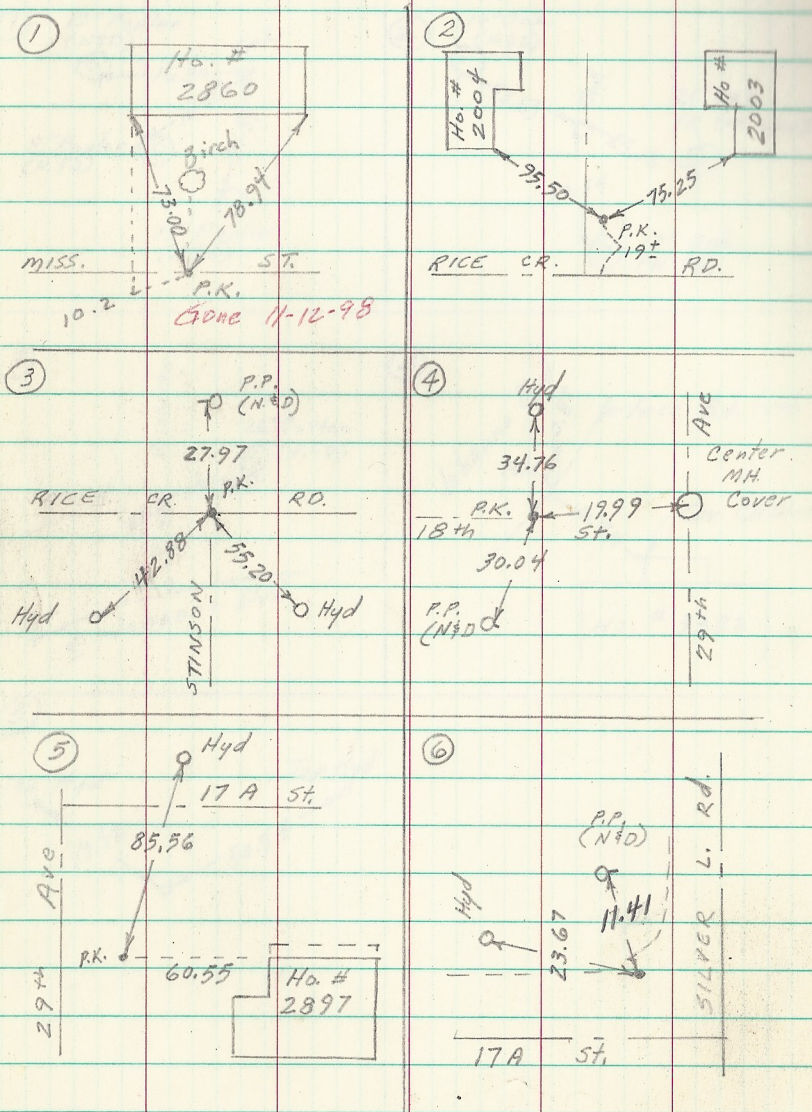 1
Ho. #
2860
Birch
73.00
78.94
MISS. ST.
10.2
P.K.
Gone 11-12-98
2
Ho. #
2004
Ho #
2003
95.50
75.25
P.K.
19±
RICE CR. RD.
3
P.P.
(N&D)
27.97
P.K.
RICE CR. RD.
42.88
55.20
Hyd
Hyd
STINSON
4
Hyd
34.76
P.K.
19.99
18th St.
30.04
P.P.
(N&D
Center
MH.
Cover
29th Ave
5
Hyd
17 A St.
85.56
29th Ave
P.K.
60.55
Ho. #
2897
6
P.P.
(N&D)
Hyd
11.41
23.67
SILVER L. Rd.
17A St.